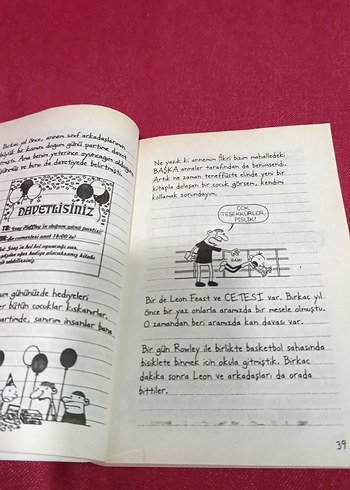 Birkaç yıl önce, annem sınıf arkadaşlarımın
büyük bir kısmını doğum günü partime davet
etmişti. Ama benim yeterince oyuncağım olduğunu
ve bunu da davetiyede belirtmişti.
DAVETLİSİNİZ
doğum günü partisi!
cumartesi saat 14:00 te!
günümüzde hediyeleri
bütün çocuklar kıskanırlar.
partimde, sanırım insanlar bana
Ne yazık ki annemin fikri bizim mahalledeki
BAŞKA anneler tarafından da benimsendi.
Artık ne zaman teneffüste elinde yeni bir
kitapla dolaşan bir çocuk görsem, kendimi
kollamak zorundayım.
ÇOK
TEŞEKKÜRLER,
PİSLİK!
BAM!
Bir de Leon Feast ve ÇETESİ var. Birkaç yıl
önce bir yaz onlarla aramızda bir mesele olmuştu.
O zamandan beri aramızda kan davası var.
Bir gün Rowley ile birlikte basketbol sahasında
bisiklete binmek için okula gitmiştik. Birkaç
dakika sonra Leon ve arkadaşları da orada
bittiler.
39